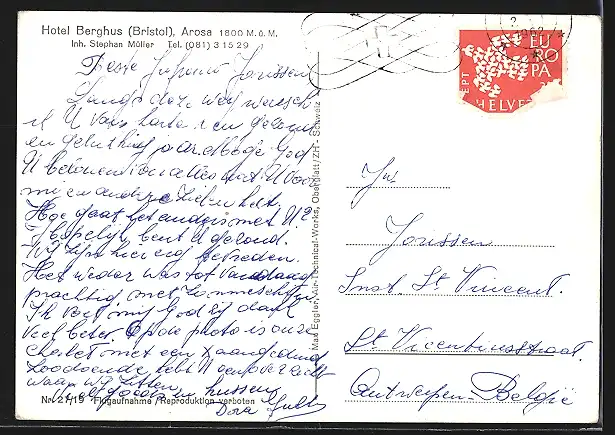 Hotel Berghus (Bristol), Arosa 1800 M.ü.M.
Inh. Stephan Müller Tel. (081) 3 15 29
Beste Jufrouw Jorissen
Langs deze weg wensch
ik U van harte een gezond
en gelukkig jaar. Moge God
U beloonen voor alles wat U voor
mij en andere lieden hebt.
Hoe gaat het anders met U?
Hopelijk bent U gezond.
Wij zijn hier erg tevreden.
Het weder was tot vandaag
prachtig, met zonneschijn.
Ik voel mij God zij dank
veel beter. Op de photo is onze
chalet met een x aangeduid
Zoodoende hebt U een overzicht
waar wij zitten.
veel groeten en kussen
Dora
Nr. 21/19 Flugaufnahme / Reproduktion verboten
Max Eggler, Air-Technical-Works, Oberglatt/ZH - Schweiz
1962
EUROPA
CEPT
HELVE
Jus
Jorissen
Inst. St Vincent.
St Vincentiusstraat
Antwerpen-België